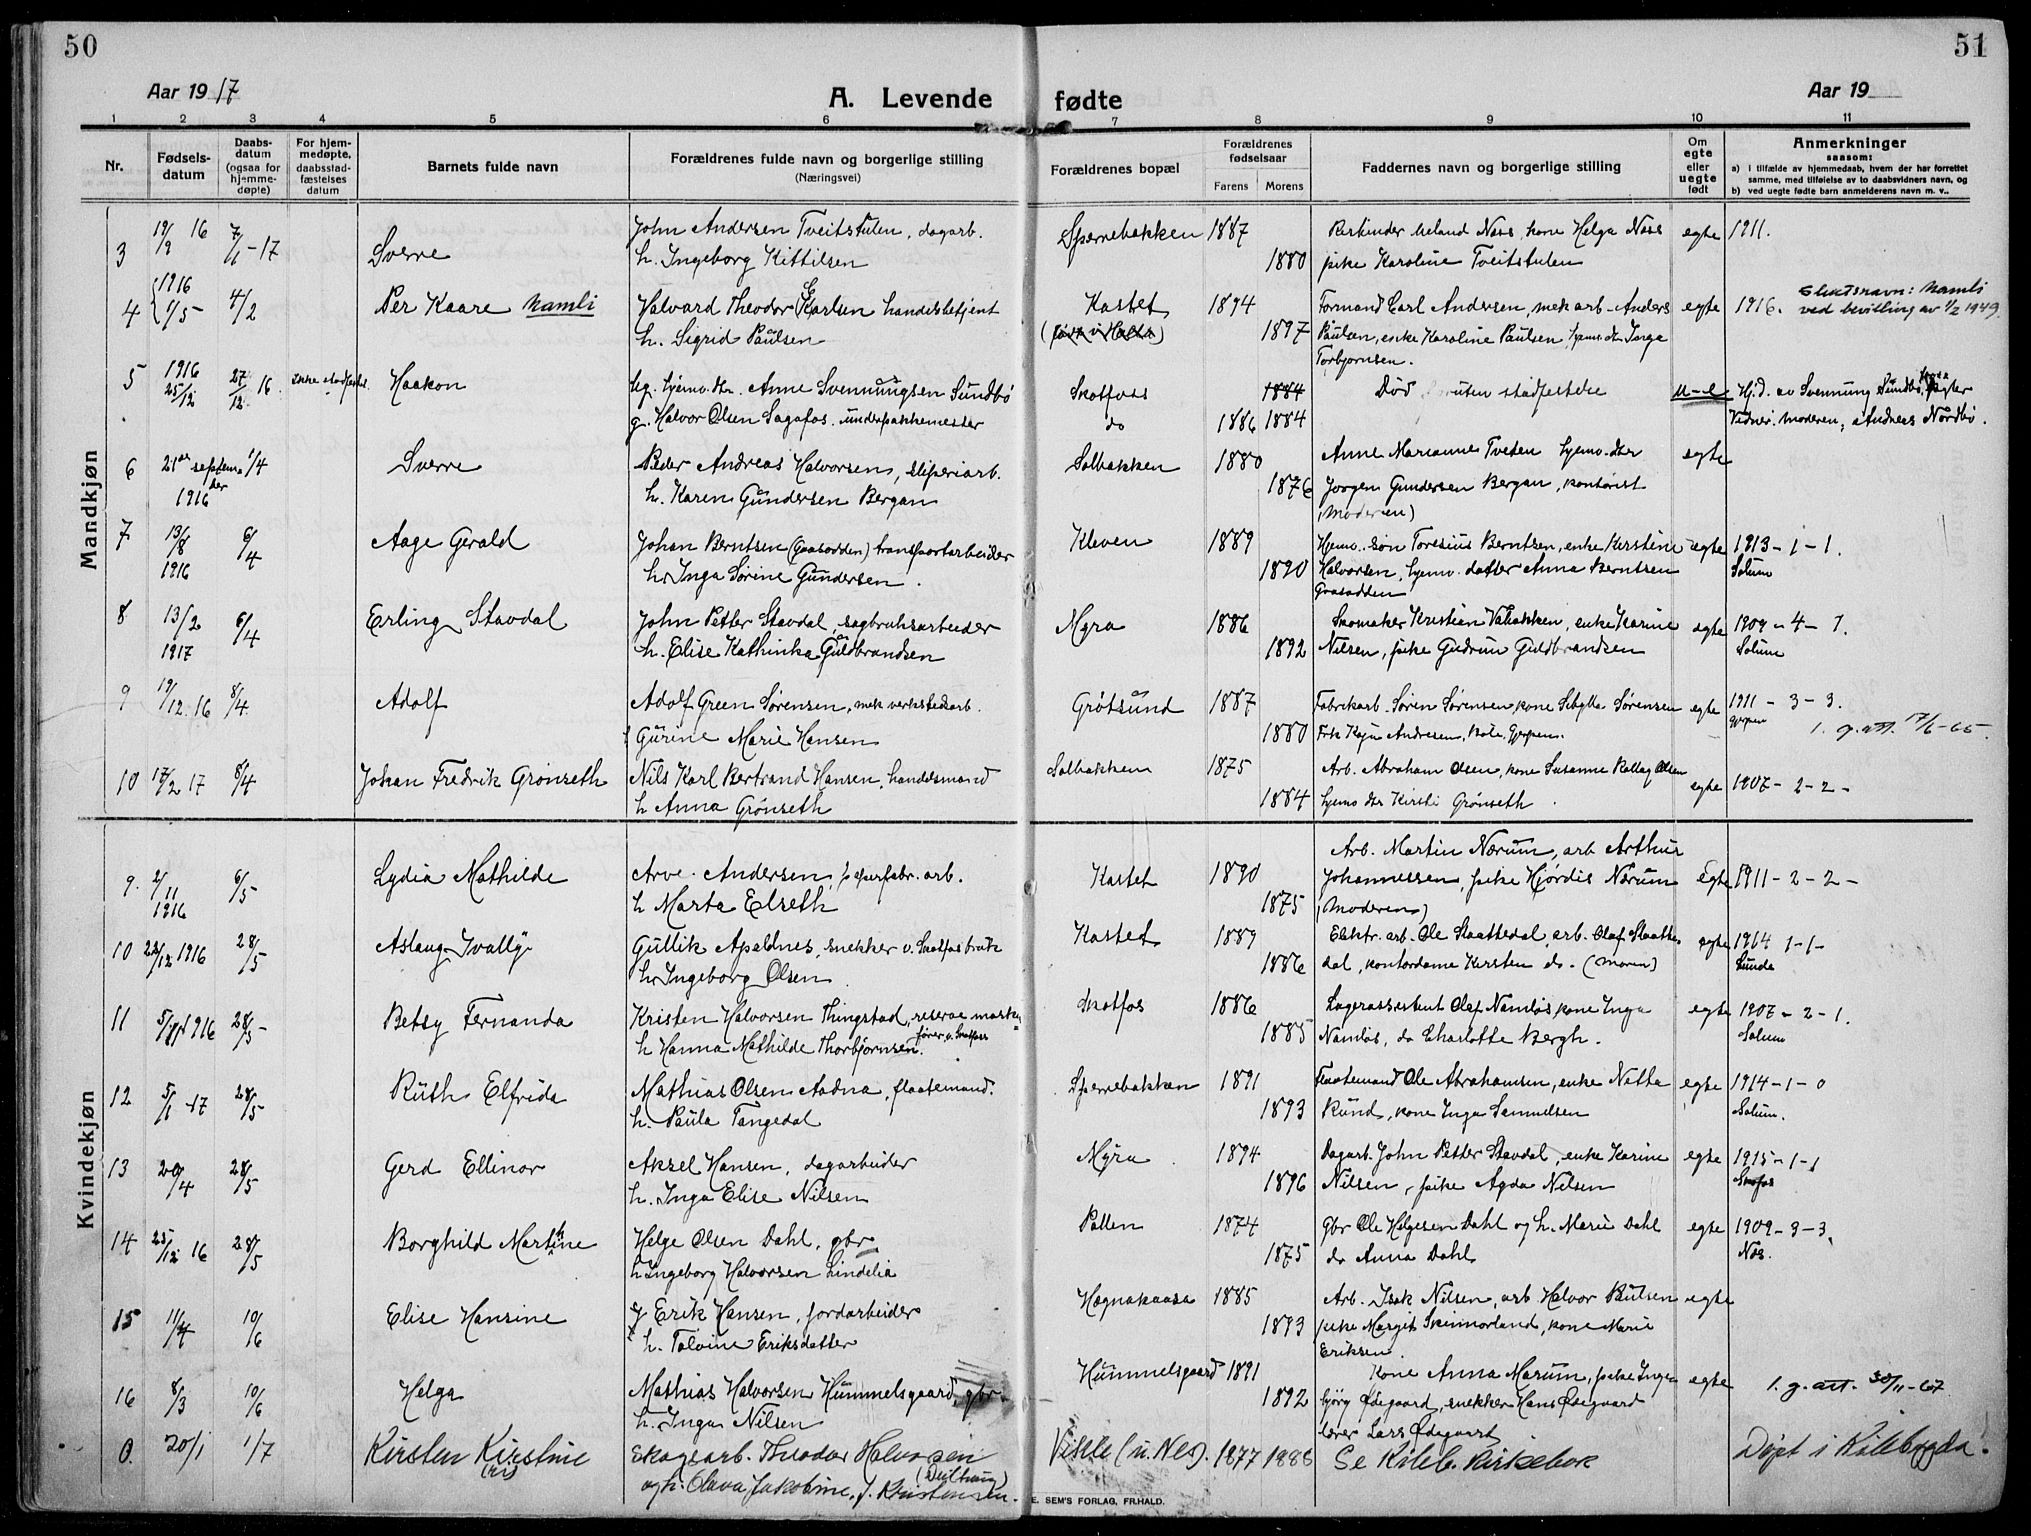 50
51
Aar 1917
A. Levende fødte
Aar 19
1 2 3 4 5 6 7 8 9 10 11
Nr.
Fødsels-
datum
Daabs-
datum
(ogsaa for
hjemme-
døpte)
For hjem-
medøpte,
daabsstad-
fæstelses
datum
Barnets fulde navn
Forældrenes fulde navn og borgerlige stilling
(Næringsvei)
Forældrenes bopæl
Forældrenes
fødselsaar
Farens Morens
Faddernes navn og borgerlige stilling
Om
egte
eller
uegte
født
Anmerkninger
saasom:
a) i tilfælde av hjemmedaab, hvem der har forrettet
samme, med tilføielse av to daabsvidners navn, og
b) ved uegte fødte barn anmelderens navn m. v..
Mandkjøn
3 19/9 16 7/1-17 Sverre John Andersen Tveitstulen, dagarb. Sperrebakken 1887 Næss, kone Helga Næss egte 1911.
h. Ingeborg Kittilsen 1880 pike Karoline Tveitstulen
4 1916 1/5 4/2 Per Kaare Namli Halvard Theodor Karlsen handelsbetjent Kastet 1894 Formand Carl Andersen, mek arb. Anders egte 1916. Slektsnavn: Namli
ved bevilling av 1/2 1949.
h. Sigrid Paulsen 1897 Paulsen, enke Karoline Paulsen, hjemv. dtr Inga
Torbjørnsen.
5 1916 25/12 27/12 16 ikke stadfestet Haakon ug. hjemv. dtr. Anne Svennungsen Sundbø Skotfoss 1884 Død uten stadfestelse u-e Hj.d. av Svennung Sundbø,
g. Halvor Olsen Sagafos. underpakkemester do 1886 1884 Vidner: moderen, Andreas Nordbø.
6 21de september 1916 1/4 Sverre Peder Andreas Halvorsen, sliperiarb. Solbakken 1880 Anne Marianne Tveten hjemv. dtr egte
h. Karen Gundersen Bergan 1876 Jørgen Gundersen Bergan, kontorist
(Moderen)
7 13/8 1916 6/4 Aage Gerald Johan Berntsen (Graasodden) transportarbeider Kleven 1889 Hjemv. søn Toresius Berntsen, enke Kirstine egte 1913-1-1.
h. Inga Sørine Gundersen. 1890 Halvorsen, hjemv. datter Anna Berntsen Solum
Graasodden
8 13/2 1917 6/4 Erling Stavdal John Petter Stavdal, sagbruksarbeider Myra 1886 Skomaker Kristian Valbakken, enke Karine egte 1909-4-1.
h. Elise Kathinka Guldbrandsen 1892 Nilsen, pike Gudrun Guldbrandsen Solum
9 19/12 16 8/4. Adolf Adolf Green Sørensen, mek verkstedsarb. Grøtsund 1887 Fabrikarb. Søren Sørensen kone Sibylla Sørensen egte 1911-3-3.
Gurine Marie Hansen 1880 Frk Kaja Andresen, Bøle, Gjerpen. Gjerpen 1. g. att. 17/6-65.
10 17/2 17 8/4 Johan Fredrik Grønseth Nils Karl Bertrand Hansen, handelsmand Solbakken 1875 Arb. Abraham Olsen, kone Susanne Rollag Olsen egte 1907-2-2-
h Anna Grønseth 1884 hjemv dtr Kirsti Grønseth
Kvindekjøn
9. 2/11 1916 6/5 Lydia Mathilde Arve Andersen, papirfabr. arb. Kastet 1890 Arb. Martin Nærum, arb Arthur
Johannessen, pike Hjørdis Nærum Egte 1911-2-2-
h Marta Elseth 1875 (Moderen)
10 23/12 1916 28/5 Aslaug Ivally Gullik Apaldnes, snekker v. Skotfos bruk Kastet 1889 Elektr. arb. Ole Skattedal, arb. Olaf Skatte- egte 1914 1-1-
h. Ingeborg Olsen 1886 dal, kontordame Kirsten do. (Moren) Lunde
11 28/5- Betsy Fernanda Kristen Halvorsen Thingstad, reserve maskin- Skotfos 1886 Lagerassistent Olef Namløs, kone Inga egte 1907-2-1.
fører v. Skotfoss
h Hanna Mathilde Thorbjørnsen. 1885 Namløs, do Charlotte Bergh. Solum
12 5/1-17 28/5- Ruth Elfrida Mathias Olsen Aadna, flaatemand. Sperrebakken 1891 Flaatemand Ole Abrahamsen, enke Netta egte 1914-1-0
h. Paula Tangedal 1893 Rund, kone Inga Samuelsen Solum.
13 20/4 28/5 Gerd Ellinor Aksel Hansen, dagarbeider Myra 1894 Dagarb. John Petter Stavdal, enke Karine egte 1915-1-1
h. Inga Elise Nilsen 1896 Nilsen, pike Agda Nilsen Skotfos
14 23/12 16 28/5 Borghild Marthine Helge Olsen Dahl, gbr Pollen 1874 Gbr Ole Helgesen Dahl og h. Marie Dahl egte 1909-3-3.
h Ingeborg Halvorsen Lindelia 1875 do Anna Dahl Næs.
15 11/4 10/6 Elise Hansine Erik Hansen, jordarbeider Høgnakaasa 1885 Arb. Isak Nilsen, arb Halvor Paulsen egte
h. Tolvine Eriksdatter 1893 pike Margit Skinmorland, kone Marie
Eriksen
16 8/3 10/6 Helga Mathias Halvorsen Hummelsgaard, gbr Hummelsgaard 1891 Kone Anna Marum, pike Inge- egte 1. g. att. 30/11-67
h. Inga Nilsen 1892 bjørg Ødegaard, snekker Hans Ødegaard
lærer Lars Ødegaard
0. 20/1 1/7 Kirsten Kirstine Skogsarb. Theodor Halvorsen (u. Nes). 1877 1888 Se Kileb. kirkebok Døpt i Kilebygda.
og h. Olava Jakobine, f. Kristensen.
E. SEM'S FORLAG, FR.HALD.